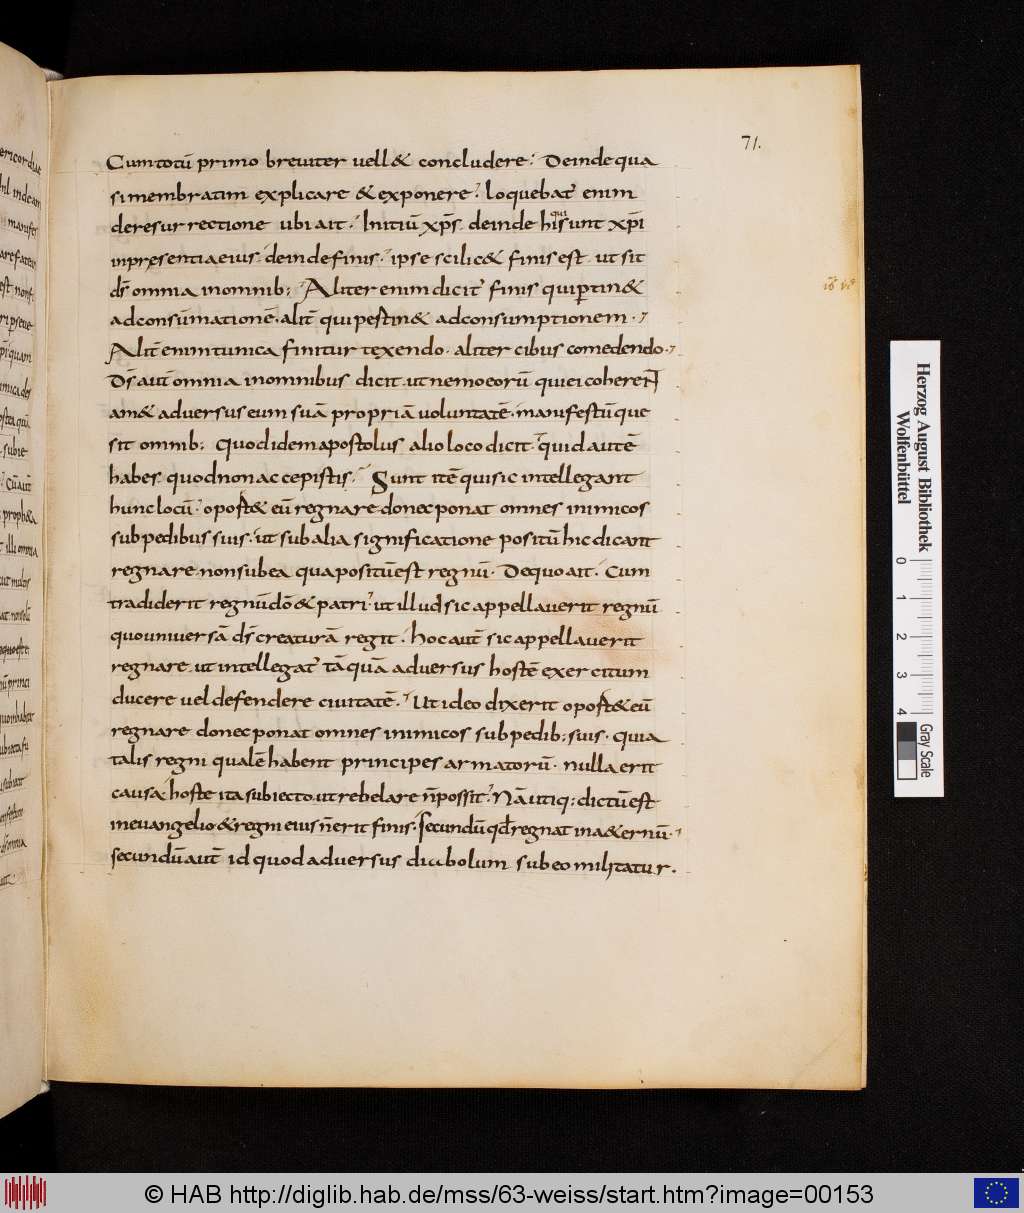 71.
Cum totū primo breuiter uell& concludere. Deinde qua
si membratim explicare & exponere. loquebat̄ enim
de resurrectione ubi ait. Initiū xp̄s. deinde hi qui sunt xp̄i
in presentia eius. deinde finis. ipse scilic& finis est ut sit
ds̄ omnia in omnib; Aliter enim dicit̄ finis qui pertin&
ad consūmationē. alit̄ qui pestin& ad consumptionem.
Alit̄ enim tunica finitur texendo. aliter cibus comedendo.
Ds̄ aut̄ omnia in omnibus dicit. ut nemo eorū qui ei coherent
am& aduersus eum suā propriā uoluntatē. manifestūque
sit omnib; Quod idem apostolus alio loco dicit. quid autē
habes quod non accepistis. Sunt itē qui sic intellegant
hunc locū. oport& eū regnare donec ponat omnes inimicos
sub pedibus suis. ut sub alia significatione positū hic dicant
regnare. non sub ea qua positū est regnū. De quo ait. Cum
tradiderit regnū dō & patri. ut illud sic appellauerit regnū
quo uniuersā ds̄ creaturā regit. hoc aut̄ sic appellauerit
regnare. ut intellegat̄ tāquā aduersus hostē exercitum
ducere uel defendere ciuitatē. Ut ideo dixerit oport& eū
regnare donec ponat omnes inimicos sub pedib; suis. quia
talis regni qualē habent principes armatorū. nulla erit
causa hoste ita subiecto. ut rebelare n̄ possit. Nā utiq; dictū est
in euangelio & regni eius n̄ erit finis. secundū qd̄ regnat in a&ernū.
secundū aut̄ id quod aduersus diabolum sub eo militatur.
ericordiae
manifes
ipsa quam
subie
Cū aut̄
proph&a
t illi omnia
ut multis
Herzog August Bibliothek
Wolfenbüttel
0 1 2 3 4
Gray Scale
© HAB http://diglib.hab.de/mss/63-weiss/start.htm?image=00153